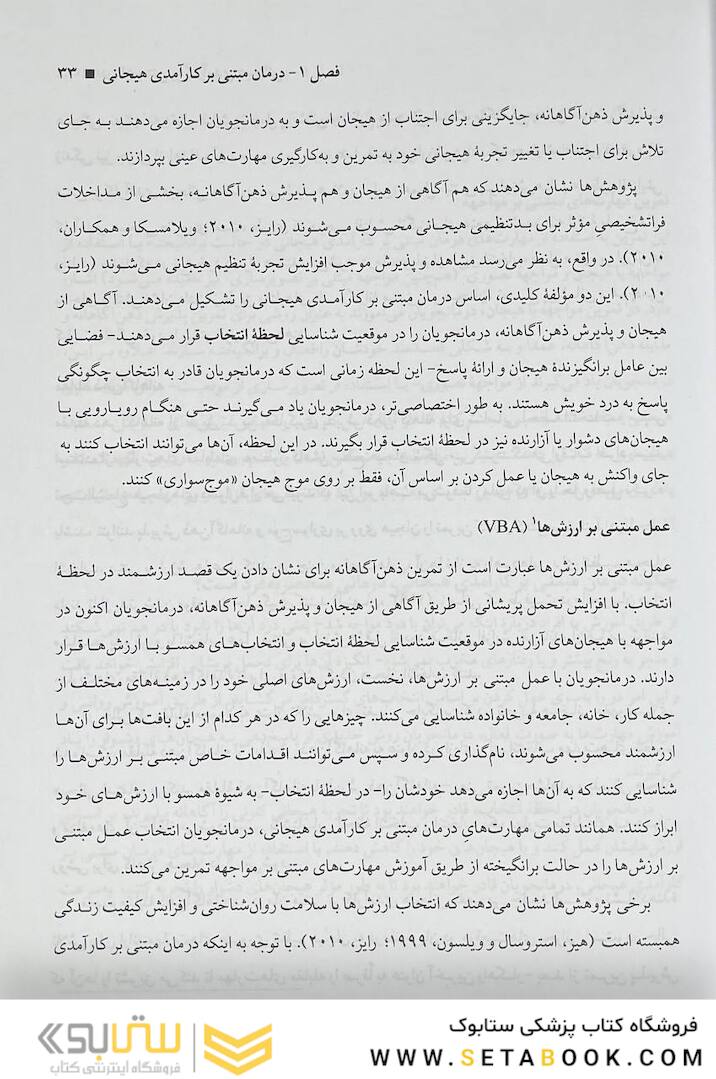 فصل ۱- درمان مبتنی بر کارآمدی هیجانی ■ ۳۳
و پذیرش ذهن‌آگاهانه، جایگزینی برای اجتناب از هیجان است و به درمانجویان اجازه می‌دهند به جای
تلاش برای اجتناب یا تغییر تجربهٔ هیجانی خود به تمرین و به‌کارگیری مهارت‌های عینی بپردازند.
پژوهش‌ها نشان می‌دهند که هم آگاهی از هیجان و هم پذیرش ذهن‌آگاهانه، بخشی از مداخلات
فراتشخیصیِ مؤثر برای بدتنظیمی هیجانی محسوب می‌شوند (رایز، ۲۰۱۰؛ ویلامسکا و همکاران،
۲۰۱۰). در واقع، به نظر می‌رسد مشاهده و پذیرش موجب افزایش تجربهٔ تنظیم هیجانی می‌شوند (رایز،
۲۰۱۰). این دو مؤلفهٔ کلیدی، اساس درمان مبتنی بر کارآمدی هیجانی را تشکیل می‌دهند. آگاهی از
هیجان و پذیرش ذهن‌آگاهانه، درمانجویان را در موقعیت شناسایی لحظهٔ انتخاب قرار می‌دهند- فضایی
بین عامل برانگیزندهٔ هیجان و ارائهٔ پاسخ- این لحظه زمانی است که درمانجویان قادر به انتخاب چگونگی
پاسخ به درد خویش هستند. به طور اختصاصی‌تر، درمانجویان یاد می‌گیرند حتی هنگام رویارویی با
هیجان‌های دشوار یا آزارنده نیز در لحظهٔ انتخاب قرار بگیرند. در این لحظه، آن‌ها می‌توانند انتخاب کنند به
جای واکنش به هیجان یا عمل کردن بر اساس آن، فقط بر روی موج هیجان «موج‌سواری» کنند.
عمل مبتنی بر ارزش‌ها¹ (VBA)
عمل مبتنی بر ارزش‌ها عبارت است از تمرین ذهن‌آگاهانه برای نشان دادن یک قصد ارزشمند در لحظهٔ
انتخاب. با افزایش تحمل پریشانی از طریق آگاهی از هیجان و پذیرش ذهن‌آگاهانه، درمانجویان اکنون در
مواجهه با هیجان‌های آزارنده در موقعیت شناسایی لحظهٔ انتخاب و انتخاب‌های همسو با ارزش‌ها قرار
دارند. درمانجویان با عمل مبتنی بر ارزش‌ها، نخست، ارزش‌های اصلی خود را در زمینه‌های مختلف از
جمله کار، خانه، جامعه و خانواده شناسایی می‌کنند. چیزهایی را که در هر کدام از این بافت‌ها برای آن‌ها
ارزشمند محسوب می‌شوند، نام‌گذاری کرده و سپس می‌توانند اقدامات خاص مبتنی بر ارزش‌ها را
شناسایی کنند که به آن‌ها اجازه می‌دهد خودشان را- در لحظهٔ انتخاب- به شیوهٔ همسو با ارزش‌های خود
ابراز کنند. همانند تمامی مهارت‌هایِ درمان مبتنی بر کارآمدی هیجانی، درمانجویان انتخاب عمل مبتنی
بر ارزش‌ها را در حالت برانگیخته از طریق آموزش مهارت‌های مبتنی بر مواجهه تمرین می‌کنند.
برخی پژوهش‌ها نشان می‌دهند که انتخاب ارزش‌ها با سلامت روان‌شناختی و افزایش کیفیت زندگی
همبسته است (هیز، استروسال و ویلسون، ۱۹۹۹؛ رایز، ۲۰۱۰). با توجه به اینکه درمان مبتنی بر کارآمدی
فروشگاه کتاب پزشکی ستابوک
WWW.SETABOOK.COM
ستابوک
فروشگاه اینترنتی کتاب